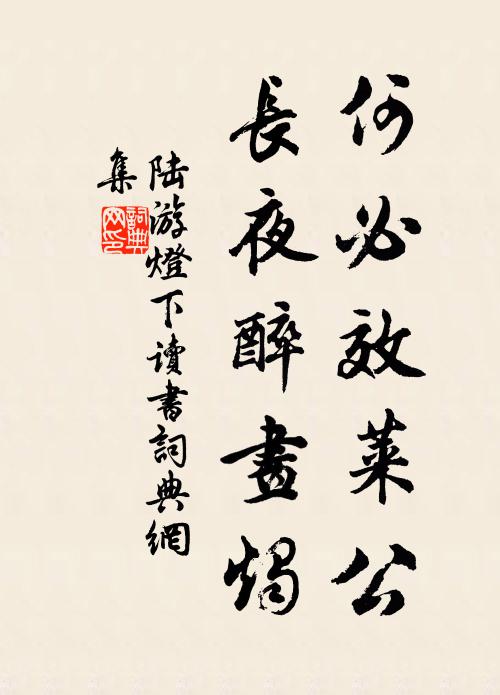 何必效萊公
長夜醉畫燭
陸游燈下讀書詞典網
集
詞典
网印